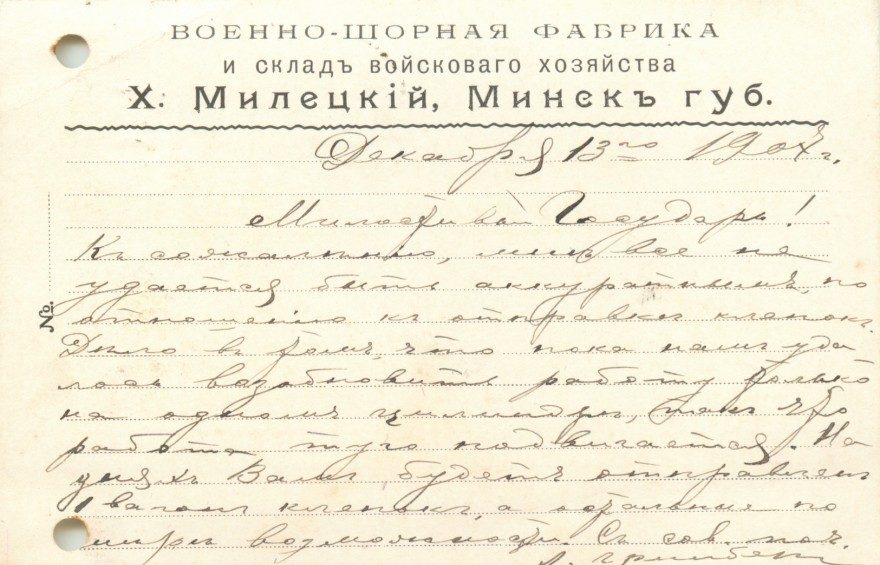 ВОЕННО-ШОРНАЯ ФАБРИКА
И СКЛАДЪ ВОЙСКОВАГО ХОЗЯЙСТВА
Х. Милецкій, Минскъ губ.
Декабря 13го 1907 г.
Милостивый Государь!
Къ сожалѣнію, мнѣ все не
удается быть аккуратнымъ, по
отношенію къ отправкѣ клепокъ.
Дѣло въ томъ, что пока намъ уда
лось возобновить работу только
на одномъ цилиндрѣ, такъ что
работа туго подвигается. На
дняхъ Вамъ будетъ отправленъ
1 вагонъ клепокъ, а остальные по
мѣрѣ возможности. Съ сов. поч.
№.